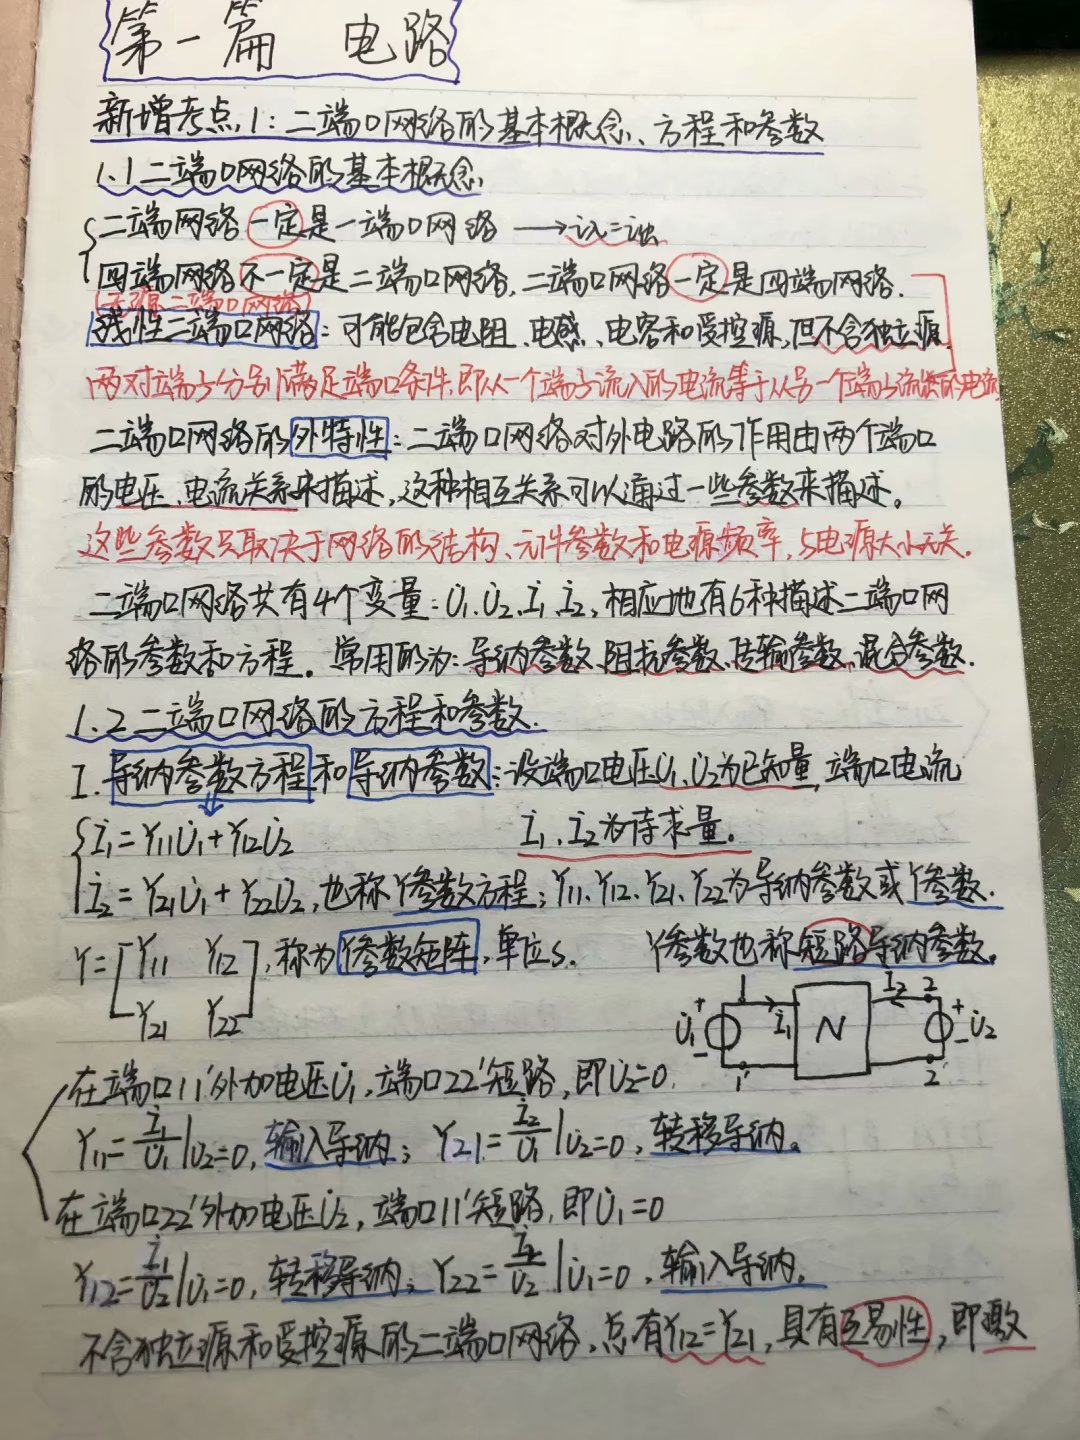 第一篇 电路
新增考点1:二端口网络的基本概念、方程和参数
1.1二端口网络的基本概念
二端网络一定是一端口网络 → i入=i出
四端网络不一定是二端口网络,二端口网络一定是四端网络.
(无源二端口网络)
线性二端口网络:可能包含电阻、电感、电容和受控源,但不含独立源.
两对端子分别满足端口条件,即从一个端子流入的电流等于从另一个端子流出的电流
二端口网络的外特性:二端口网络对外电路的作用由两个端口
的电压、电流关系来描述,这种相互关系可以通过一些参数来描述。
这些参数只取决于网络的结构、元件参数和电源频率,与电源大小无关.
二端口网络共有4个变量:U̇₁、U̇₂、İ₁、İ₂,相应地有6种描述二端口网
络的参数和方程。常用的为:导纳参数、阻抗参数、传输参数、混合参数.
1.2二端口网络的方程和参数.
I.导纳参数方程和导纳参数:设端口电压U̇₁、U̇₂为已知量,端口电流
İ₁、İ₂为待求量.
İ₁=Y₁₁U̇₁+Y₁₂U̇₂
İ₂=Y₂₁U̇₁+Y₂₂U̇₂,也称Y参数方程;Y₁₁、Y₁₂、Y₂₁、Y₂₂为导纳参数或Y参数.
Y=[Y₁₁ Y₁₂
Y₂₁ Y₂₂],称为Y参数矩阵,单位S. Y参数也称短路导纳参数。
U̇₁ + - 1 1' İ₁ N İ₂ 2 2' + - U̇₂
在端口11'外加电压U̇₁,端口22'短路,即U̇₂=0.
Y₁₁=İ₁/U̇₁|U̇₂=0,输入导纳; Y₂₁=İ₂/U̇₁|U̇₂=0,转移导纳。
在端口22'外加电压U̇₂,端口11'短路,即U̇₁=0
Y₁₂=İ₁/U̇₂|U̇₁=0,转移导纳; Y₂₂=İ₂/U̇₂|U̇₁=0,输入导纳.
不含独立源和受控源的二端口网络,总有Y₁₂=Y₂₁,具有互易性,即激